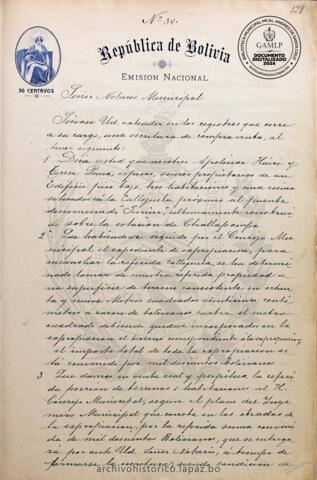 Nº 34.-
129
República de Bolivia
EMISION NACIONAL
30 CENTAVOS
BIBLIOTECA MUNICIPAL MCAL. ANDRÉS DE SANTA CRUZ
GAMLP
DOCUMENTO
DIGITALIZADO
2024
Señor Notario Municipal
Sírvase Ud. extender en los registros que corre
a su cargo, una escritura de compra venta, al
tenor siguiente:
1 Dirá usted que nosotros Apolinar y
esposos, somos propietarios de un
Edificio piso bajo, tres habitaciones y una
situado en la Callejuela próxima al puente
denominado últimamente construi
do sobre la estación de Challapampa
2 Que habiendose seguido por el Concejo Mu-
nicipal el expediente de expropiacion, para
ensanchar la referida callejuela, se ha determi
nado tomar de nuestra referida propiedad u
na superficie de terreno consistente en ochen
ta y nueve Metros cuadrados centi
metros a razon de bolivianos cuatro el metro
cuadrado debiendo quedar incorporados en la
expropiacion el terreno correspondiente
el importe total de toda la expropiacion se
ha convenido por mil doscientos Bolivianos
3 Que damos en venta real y perpétua la referi
da porcion de terrenos i habitaciones al H.
Concejo Municipal, segun el plano del Inge
niero Municipal que consta en los obrados de
la expropiacion, por la referida suma conveni
da de mil doscientos Bolivianos, que se entrega
rá por ante Ud. señor Notario, a tiempo de
firmarse la escritura, siendo condicion de
archivohistorico.lapaz.bo